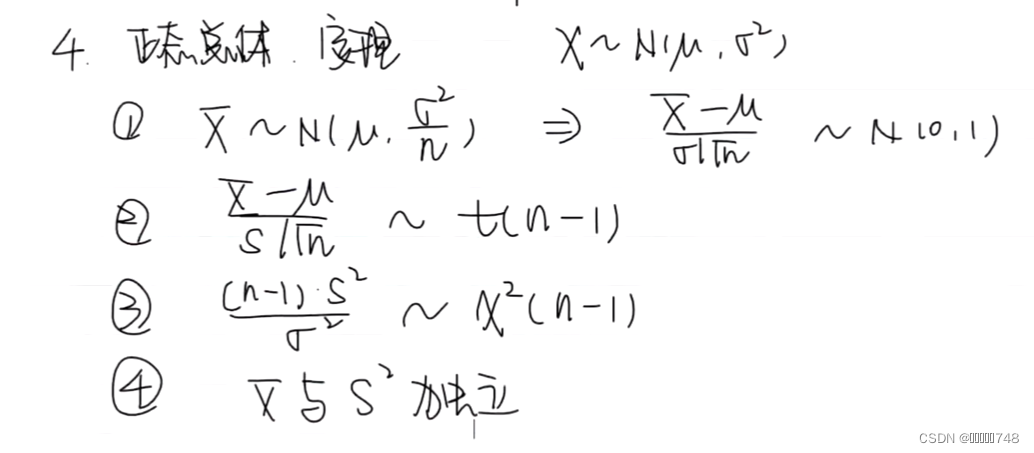 4. 正态总体. 定理 X ~ N(μ, σ²)
① X̄ ~ N(μ, σ²/n) ⇒ (X̄ - μ)/(σ/√n) ~ N(0,1)
② (X̄ - μ)/(S/√n) ~ t(n-1)
③ (n-1)·S²/σ² ~ χ²(n-1)
④ X̄ 与 S² 独立
CSDN @748